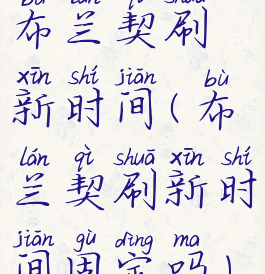 bù lán qì shuā
布兰契刷
xīn shí jiān ( bù
新时间(布
lán qì shuā xīn shí
兰契刷新时
jiān gù dìng ma
间固定吗)